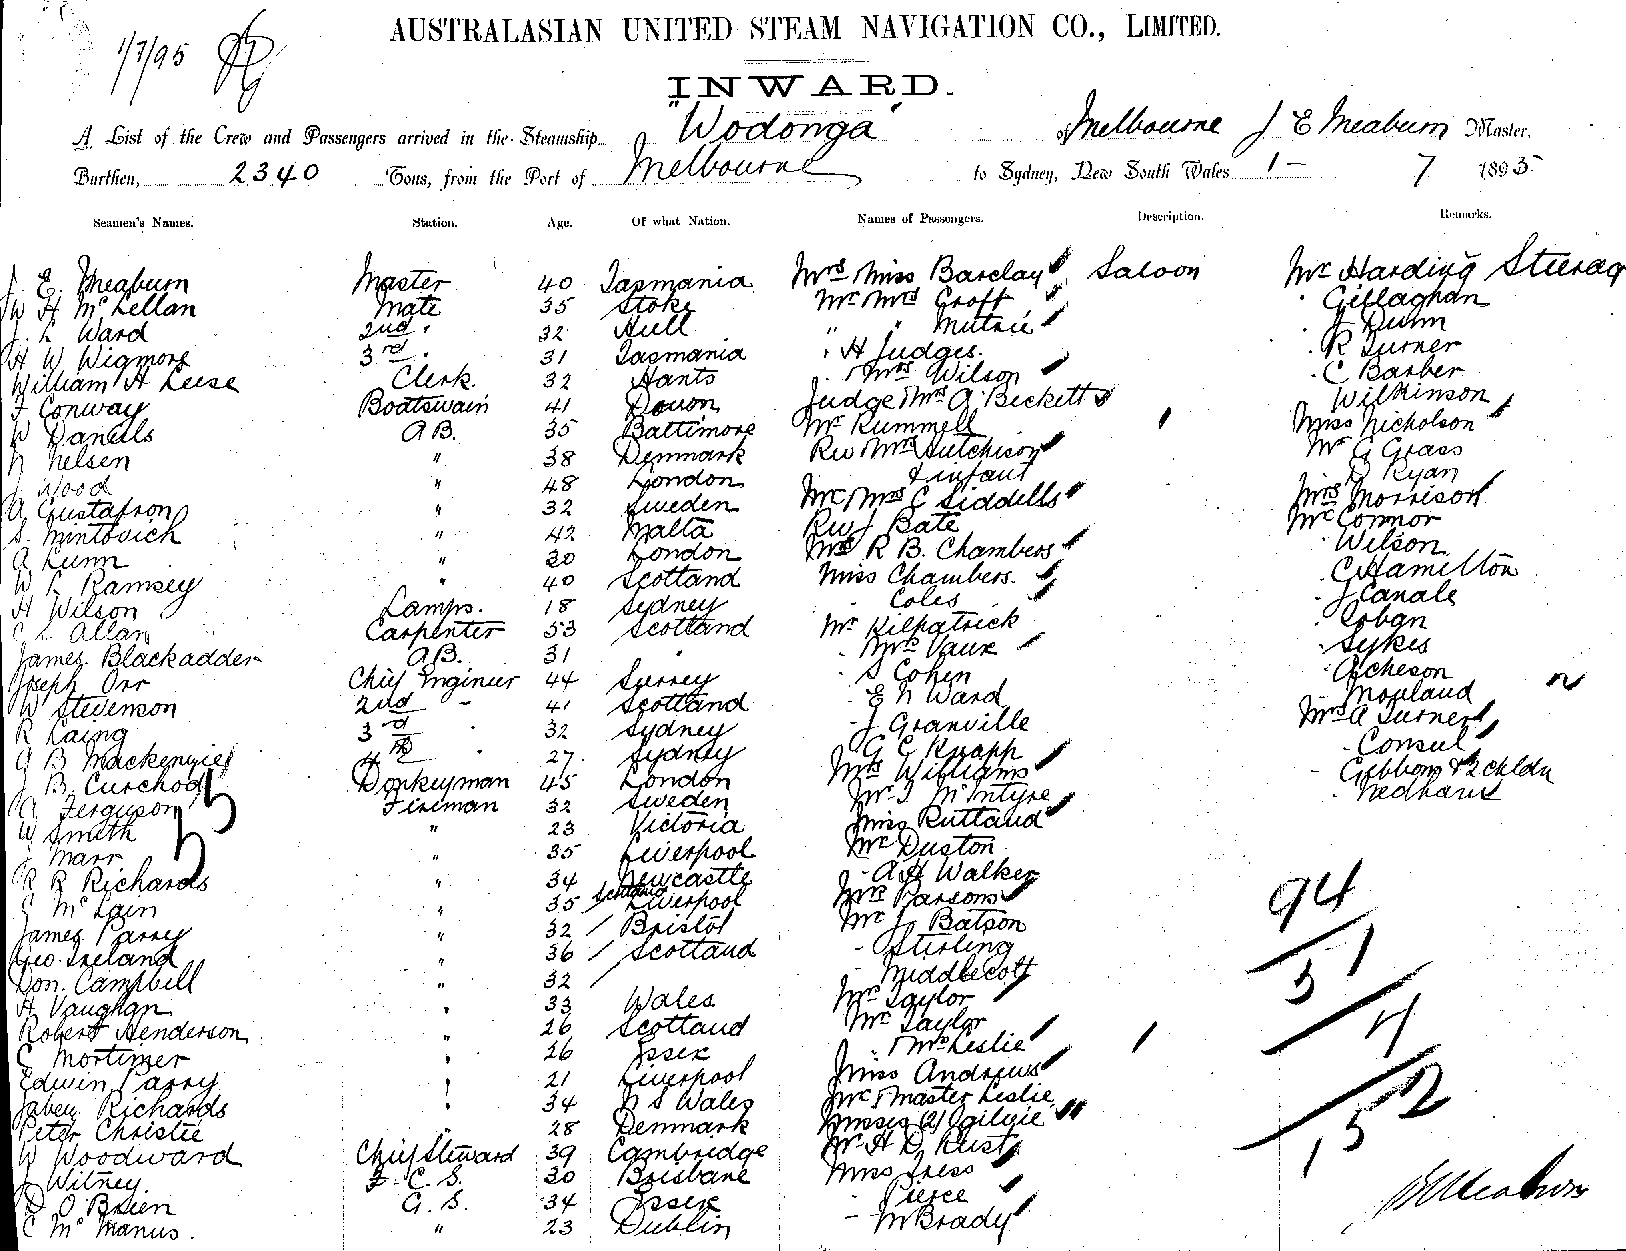 AUSTRALASIAN UNITED STEAM NAVIGATION CO., LIMITED.
1/7/95
INWARD.
A List of the Crew and Passengers arrived in the Steamship "Wodonga" of Melbourne J E Meaburn Master,
Burthen, 2340 Tons, from the Port of Melbourne to Sydney, New South Wales 1 - 7 1895
Seamen's Names. Station. Age. Of what Nation. Names of Passengers. Description. Remarks.
J. E. Meaburn Master 40 Tasmania Mrs Miss Barclay Saloon Mr Harding Steerag
W H McLellan Mate 35 Stoke Mr Mrs Croft " Gillaghan
J. L Ward 2nd " 32 Hull " " Mutrie " J Dunn
H W Wigmore 3rd " 31 Tasmania " H Judges. " R Turner
William H Leese Clerk. 32 Hants " Mrs Wilson " C Barber
F Conway Boatswain 41 Devon Judge Mrs A'Beckett Wilkinson
W Daniels A B. 35 Baltimore Mr Rummell Miss Nicholson
N Nelsen " 38 Denmark Rev Mrs Hutchison Mr G Grass
J Wood " 48 London & infant D Ryan
A Gustafson " 32 Sweden Mr Mrs C Siddells Mrs Morrison
S. Mintovich " 42 Malta Rev J Bate Mr Connor
A Lunn " 30 London Mrs R B. Chambers " Wilson
W L Ramsey " 40 Scotland Miss Chambers. " C Hamilton
H Wilson Lamps. 18 Sydney " Coles " J Canale
L Allan Carpenter 53 Scotland Mr Kilpatrick " Loban
James Blackadder A B. 31 " " Mrs Vaux " Sykes
Joseph Orr Chief Engineer 44 Surrey " S Cohen " Acheson
W Stevenson 2nd " 41 Scotland " E N Ward " Morland
R Laing 3rd 32 Sydney " J Granville Mrs A Turner
A B Mackenzie 4th " 27 Sydney " G C Knapp " Consul
J B Curchod Donkeyman 45 London Mrs Williams " Gibbons & 2 chldn
A Ferguson Fireman 32 Sweden Mr I McIntyre
W Smith " 23 Victoria Miss Rutland
J Marr " 35 Liverpool Mr Duston
R R Richards " 34 Newcastle " A H Walker
C McLain " 35 Scotland Liverpool Mrs Parsons
James Parry " 32 Bristol Mr J. Batson
Geo. Ireland " 36 Scotland " Stirling
Don. Campbell " 32 " Middlecott
H Vaughan " 33 Wales Mrs Taylor
Robert Henderson " 26 Scotland Mr Taylor
C Mortimer " 26 Essex " " Mrs Leslie
Edwin Parry " 21 Liverpool Miss Andrews
Jabez Richards " 34 N S Wales Mr & Master Leslie
Peter Christie " 28 Denmark Misses (2) Ogilvie
W Woodward Chief Steward 39 Cambridge Mr H D Rust
J Witney F. C. S. 30 Brisbane Miss Tress
D O'Brien G. S. 34 Essex " Pierce
C McManus. " 23 Dublin " McBrady
94
51
4
2
152
J E Meaburn